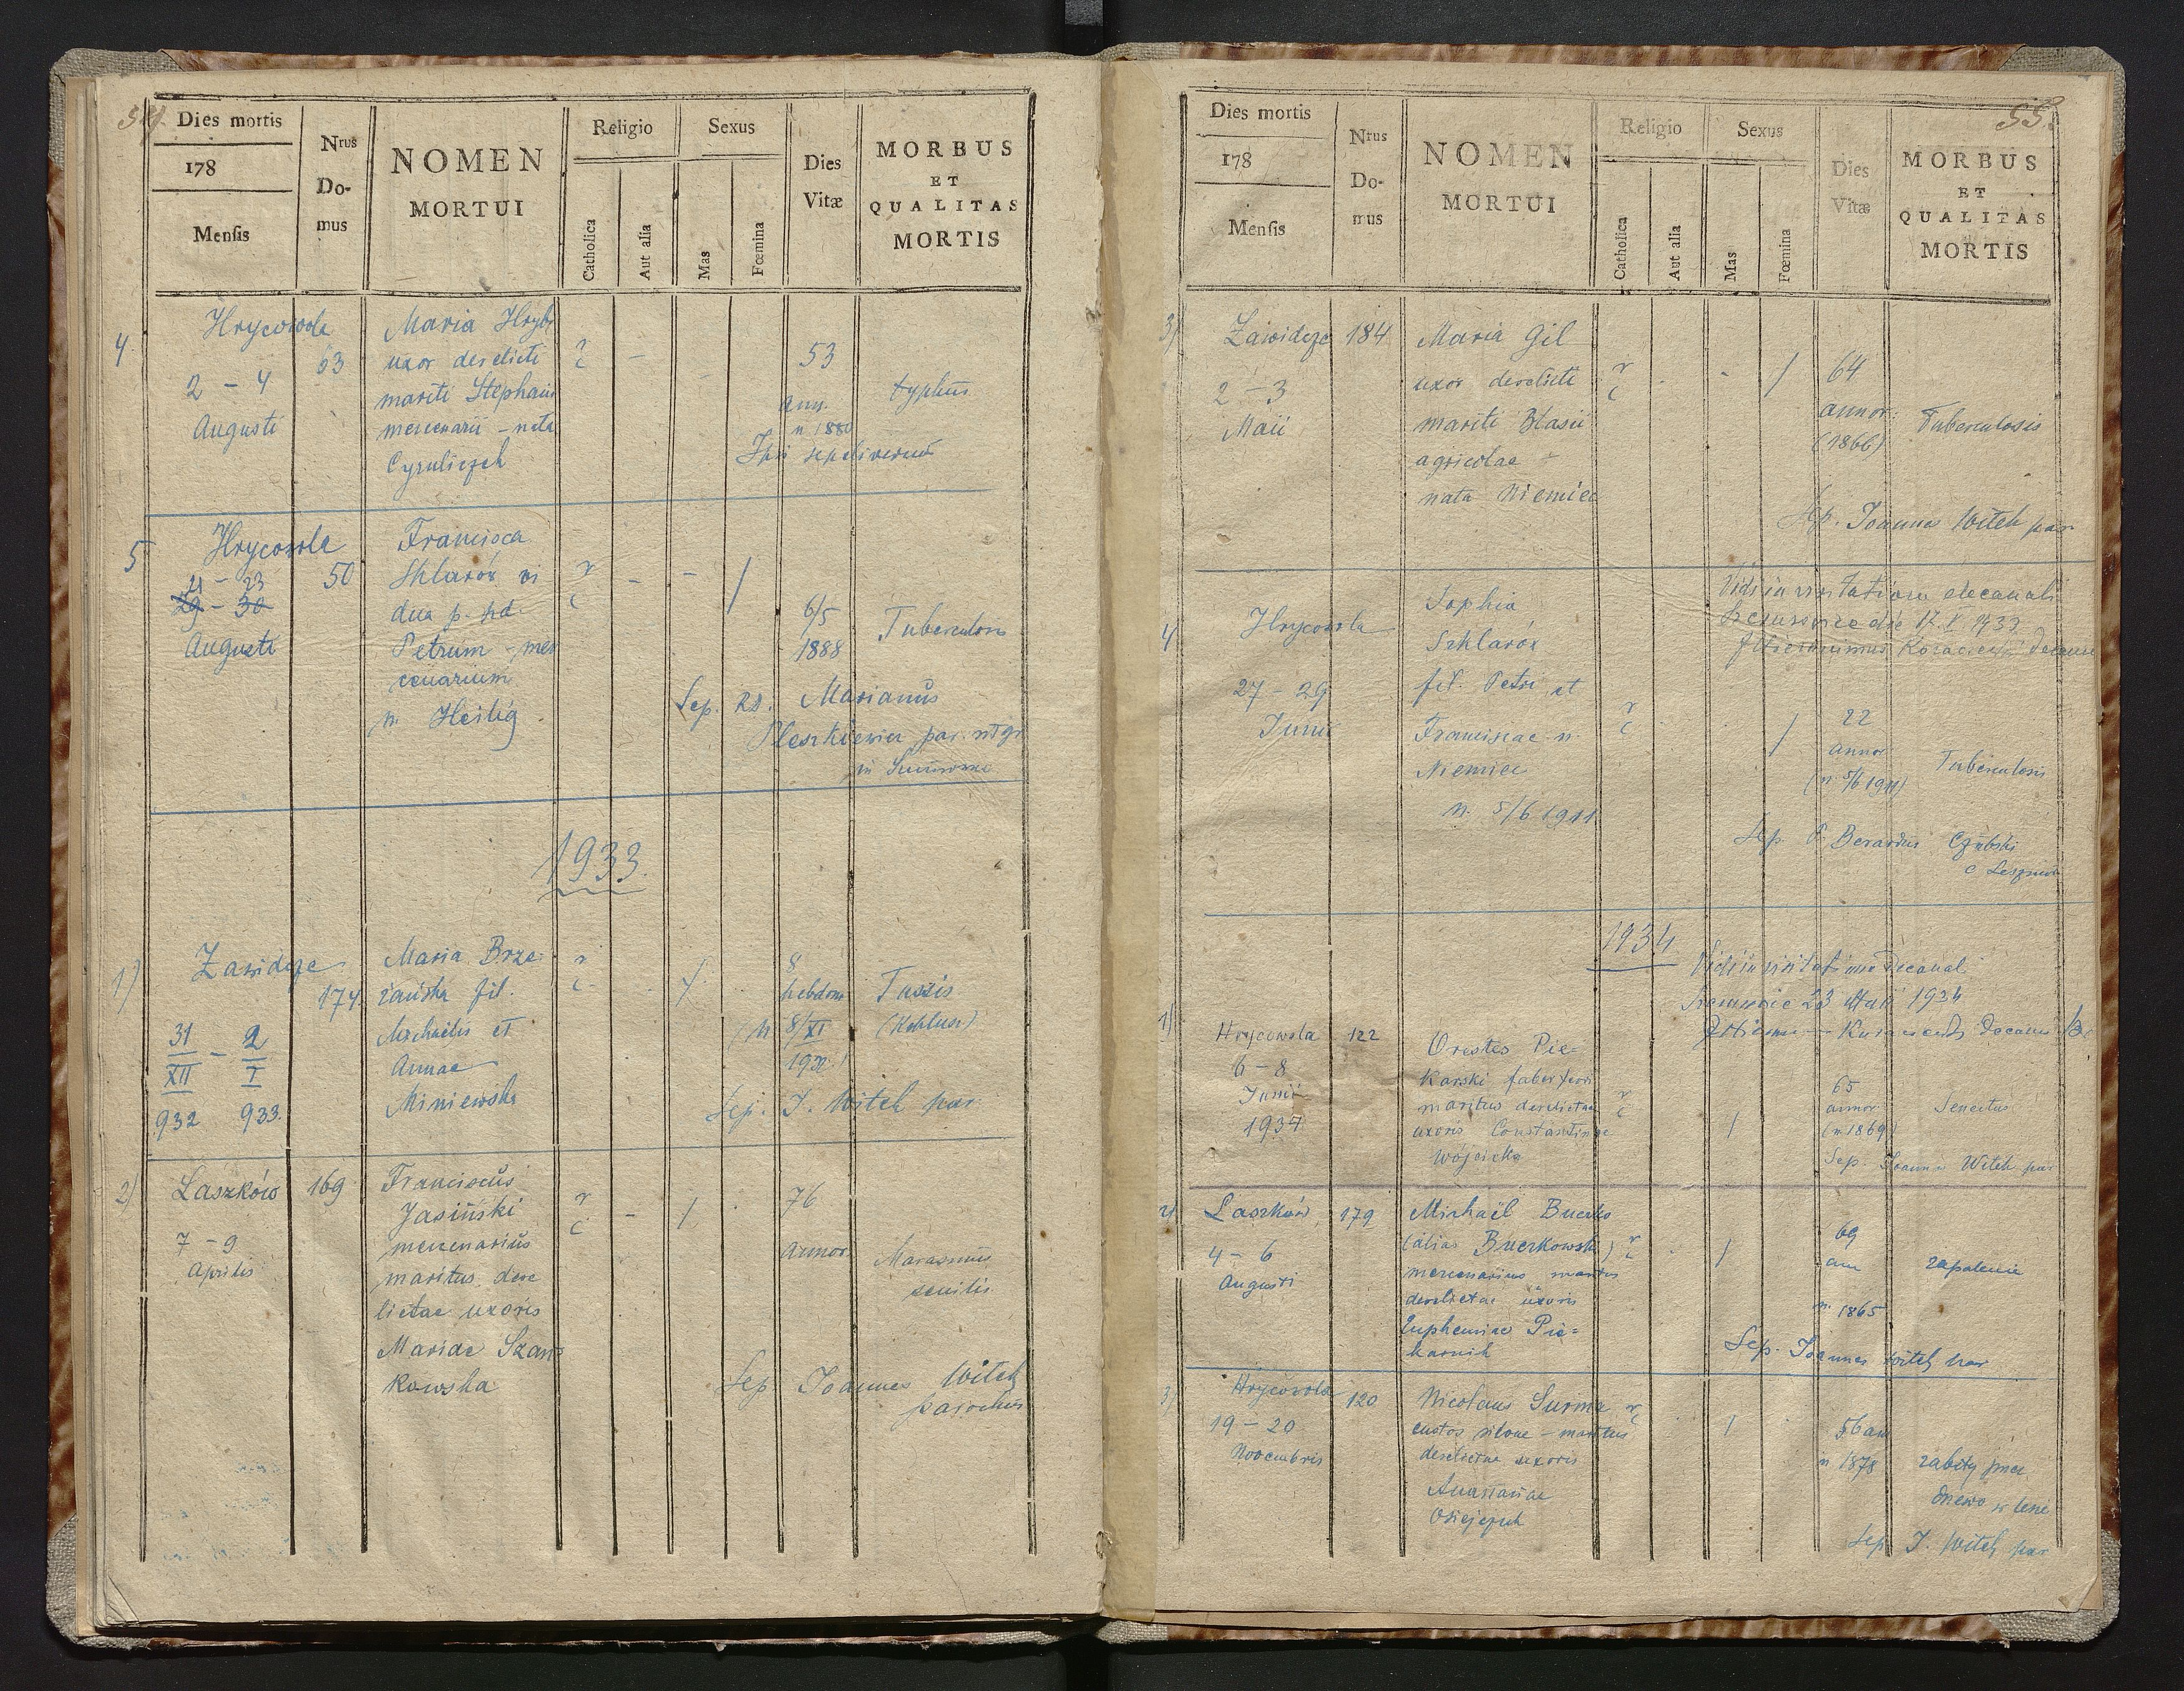 54.
Dies mortis
178
Mensis
Nrus Do- mus
NOMEN MORTUI
Religio
Catholica
Aut alia
Sexus
Mas
Fœmina
Dies Vitæ
MORBUS ET QUALITAS MORTIS
4.
Hrycowola
63
2 – 4
Augusti
Maria Hryb
uxor derelicti
mariti Stephani
mercenarii – nata
r c
53
ann.
n 1880
typhus
5
Hrycowola
50
21 – 23
29 – 30
Augusti
Francisca
Szklarów vi
dua p. pd.
Petrum – mer
cenarium
n. Heilig
r c
6/5
1888
Tuberculosis
Sep. Rd. Marianus
Pleszkiewicz par.
1933.
1)
Zawidcze
174
31/XII – 2/I
932 933.
Maria Brze-
zańska fil.
Michaelis et
Annae
Miniewska
r c
8
hebdom
(n 8/XI
1932)
Tussis
(Koklusz)
Sep. J. Witek par
2)
Laszków
169
7 – 9
Aprilis
Franciscus
Jasiński
mercenarius
maritus dere
lictae uxoris
Mariae Szan
kowska
r c
76
annor
Marasmus
senilis
Sep Joannes Witek
parochus
55.
Dies mortis
178
Mensis
Nrus Do- mus
NOMEN MORTUI
Religio
Catholica
Aut alia
Sexus
Mas
Fœmina
Dies Vitæ
MORBUS ET QUALITAS MORTIS
3)
Zawidcze
184
2 – 3
Maii
Maria Gil
uxor derelicti
mariti Blasii
agricolae –
nata Niemiec
r c
64
annor:
(1866)
Tuberculosis
Sep. Joannes Witek par
Vidi in visitatione decanali
die 17. V 1933.
Decanus
4)
Hrycowola
27 – 29
Junii
Sophia
Szklarów
fil. Petri et
Franciscae n.
Niemiec
n. 5/6 1911
r c
22
annor
(n. 5/6 1911)
Tuberculosis
Sep. P. Berardus Czubski
1934
Vidi in visitatione Decanali
23 Maii 1934
Decanus
1)
Hrycowola
122
6 – 8
Junii
1934
Orestes Pie-
karski faber
maritus derelictae
uxoris Constantinae
Wójcicka
r c
65
annor
(n. 1869)
Senectus
Sep. Joannes Witek par
2)
Laszków
179
4 – 6
Augusti
Michaël Buczko
(alias Buczkowski)
mercenarius maritus
derelictae uxoris
Euphemiae Pie-
karnik
r c
69
ann
n. 1865
zapalenie
Sep. Joannes Witek par
3)
Hrycowola
120
19 – 20
Novembris
Nicolaus Surma
custos silvae – maritus
derelictae uxoris
Anastasiae
r c
56 ann
n 1878
zabity przez
drzewo w lesie
Sep J. Witek par